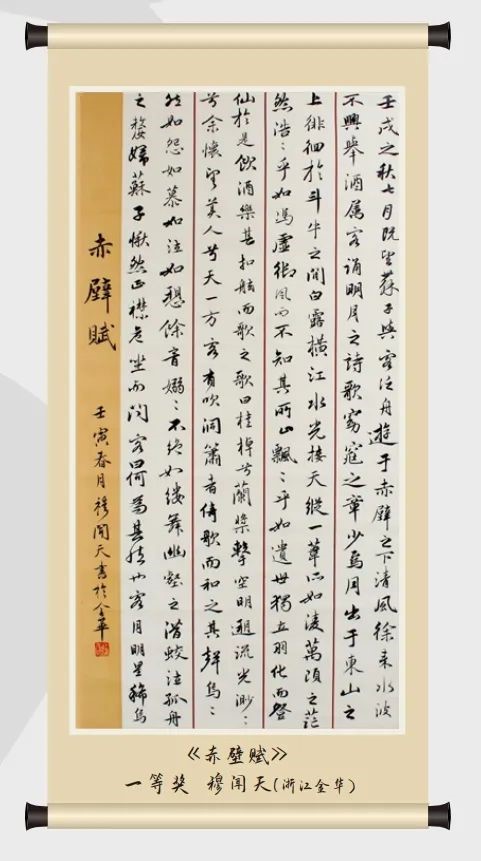 壬戌之秋七月既望蘇子與客泛舟遊于赤壁之下清風徐來水波
不興舉酒属客誦明月之詩歌窈窕之章少焉月出于東山之
上徘徊於斗牛之間白露橫江水光接天縱一葦所如凌萬頃之茫
然浩〻乎如馮虛御風而不知其所止飄〻乎如遺世獨立羽化而登
仙於是飲酒樂甚扣舷而歌之歌曰桂棹兮蘭槳擊空明遡流光渺〻
兮余懷望美人兮天一方客有吹洞簫者倚歌而和之其聲烏〻
然如怨如慕如泣如愬餘音嫋〻不絕如縷舞幽壑之潛蛟泣孤舟
之嫠婦蘇子愀然正襟危坐而問客曰何為其然也客月明星稀烏
赤壁賦
壬寅春月穆聞天書於金華
《赤壁赋》
一等奖 穆闻天(浙江金华)